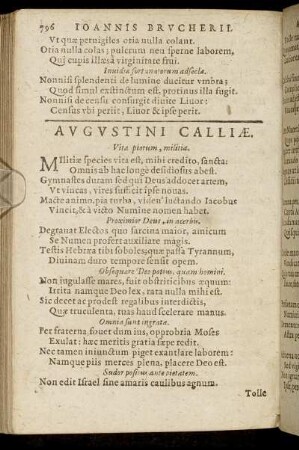 796 IOANNIS BRVCHERII.
Vt quæ peruigiles otia nulla colant.
Otia nulla colas; pulcrum neu sperne laborem,
Qui cupis illæsâ virginitate frui.
Inuidia fortunatorum adsecla.
Nonnisi splendenti de lumine ducitur vmbra;
Quod simul extinctum est, protinus illa fugit.
Nonnisi de censu consurgit diuite Liuor:
Census vbi periit; Liuor & ipse perit.
AVGVSTINI CALLIÆ.
Vita piorum, militia.
MIlitiæ species vita est, mihi credito, sancta:
Omnis ab hac longè desidiosus abest.
Gymnastes duram sed qui Deus addocet artem,
Vt vincas, vires sufficit ipse nouas.
Macte animo, pia turba, viden' luctando Iacobus
Vincit, & à victo Numine nomen habet.
Proximior Deus, in acerbis.
Degrauat Electos quo sarcina maior, amicum
Se Numen profert auxiliare magis.
Testis Hebræa tibi soboles, quæ passa Tyrannum,
Diuinam duro tempore sensit opem.
Obsequare Deo potius, quam homini.
Non iugulasse mares, fuit obstetricibus æquum:
Irrita namque Deo lex, rata nulla mihi est.
Sic decet ac prodest regalibus interdictis,
Quæ truculenta, tuas haud scelerare manus.
Omnia sunt ingrata.
Per fraterna fouet dum ius, opprobria Moses
Exulat: hæc meritis gratia sæpe redit.
Nec tamen iniunctum piget exantlare laborem:
Namque piis merces plena, placere Deo est.
Sudor positus ante pietatem.
Non edit Israel sine amaris caulibus agnum.
Tolle